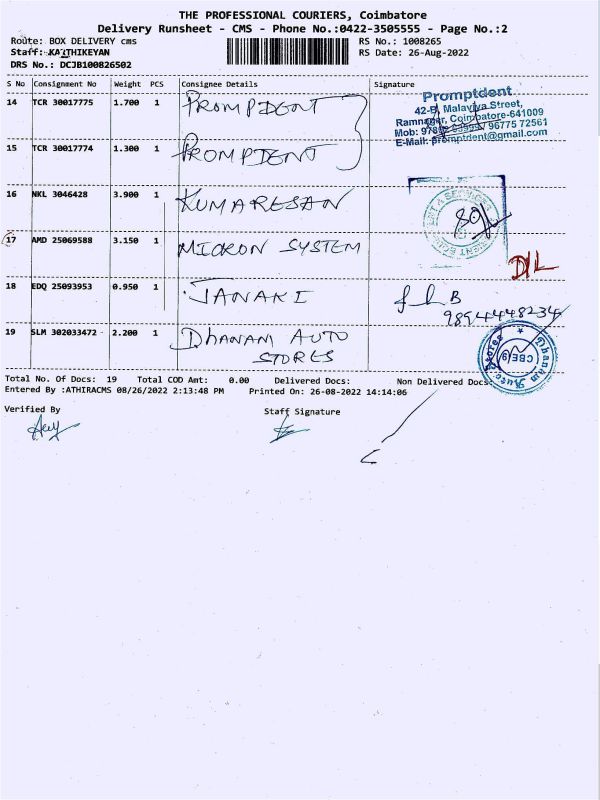 THE PROFESSIONAL COURIERS, Coimbatore
Delivery Runsheet - CMS - Phone No.:0422-3505555 - Page No.:2
Route: BOX DELIVERY cms RS No.: 1008265
Staff: KARTHIKEYAN RS Date: 26-Aug-2022
DRS No.: DCJB100826502
S No Consignment No Weight PCS Consignee Details Signature
14 TCR 30017775 1.700 1 PROMPDENT
Promptdent
42-B, Malaviya Street,
Ramnagar, Coimbatore-641009
96775 72561
E-Mail: promptdent@gmail.com
15 TCR 30017774 1.300 1 PROMPDENT
16 NKL 3046428 3.900 1 KUMARESAN
17 AMD 25069588 3.150 1 MICRON SYSTEM D/L
18 EDQ 25093953 0.950 1 JANAKI
9894448234
19 SLM 302033472 2.200 1 DHANAM AUTO
STORES
Dhanam Auto Stores
CBE
Total No. Of Docs: 19 Total COD Amt: 0.00 Delivered Docs: Non Delivered Docs:
Entered By :ATHIRACMS 08/26/2022 2:13:48 PM Printed On: 26-08-2022 14:14:06
Verified By Staff Signature